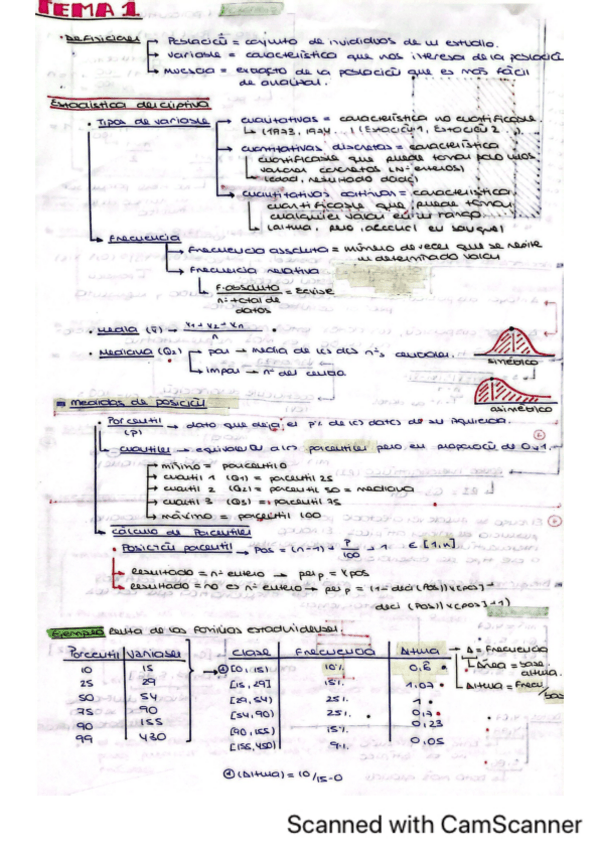 TEMA 1
• Definiciones → Población = conjunto de individuos de un estudio.
→ Variable = característica que nos interesa de la población
→ Muestra = extracto de la población que es más fácil
de analizar.
Estadística descriptiva
• Tipos de variable → cualitativas = característica no cuantificable.
↳ (1973, 1974 ... ) (Estación 1, Estación 2 ...).
→ cuantitativas discretas = característica
cuantificable que puede tomar solo unos
valores concretos (nº enteros)
(edad, resultado dado)
→ cuantitativas continuas = característica
cuantificable que puede tomar
cualquier valor en un rango
(altura, peso, en sangre)
→ Frecuencia
→ Frecuencia absoluta = número de veces que se repite
un determinado valor
→ Frecuencia relativa
↳ F. absoluta / nº total de datos =
• Media (x̄) → x₁ + x₂ + xₙ / n
• Mediana (Q₂) → par → media de los dos nºs centrales.
↳ impar → nº del centro.
simétrico
asimétrico
= medidas de posición
• Porcentil → dato que deja el p% de los datos de su izquierda.
(P)
cuantiles → equivalen a los porcentiles pero en proporción de 0 a 1.
→ mínimo = porcentil 0
→ cuartil 1 (Q1) = porcentil 25
→ cuartil 2 (Q2) = porcentil 50 = mediana
→ cuartil 3 (Q3) = porcentil 75
→ máximo = porcentil 100
→ cálculo de Porcentiles
• Posición porcentil → Pos = (n-1) · P/100 + 1 ∈ [1, n]
→ Resultado = nº entero → perp = x pos
→ Resultado = no es nº entero → perp = (1 - deci (Pos)) x[pos] +
deci (Pos) x[pos]+1)
Ejemplo: Renta de las familias estadounidenses
Porcentil Variables Clase Frecuencia Altura → A = Frecuencia
10 15 [0, 15) 10% 0,6 Área = base · altura.
25 29 [15, 29] 15% 1,07 Altura = Frec/base
50 54 [29, 54) 25% 1
75 90 [54, 90) 25% 0,7
90 155 [90, 155) 15% 0,23
99 430 [155, 430) 9% 0,05
(Altura) = 10/15-0
Scanned with CamScanner